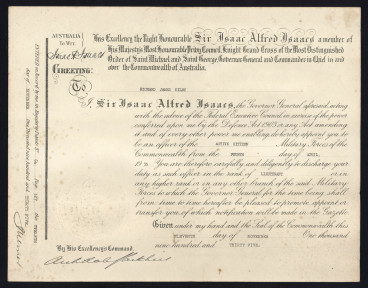 AUSTRALIA
TO WIT
His Excellency the Right Honourable Sir Isaac Alfred Isaacs a member of
His Majesty's Most Honourable Privy Council, Knight Grand Cross of the Most Distinguished
Order of Saint Michael and Saint George, Governor General and Commander in Chief in and
over the Commonwealth of Australia.
Isaac A. Isaacs
GREETING:
To
I, Sir Isaac Alfred Isaacs, the Governor General aforesaid, acting
with the advice of the Federal Executive Council in exercise of the powers
conferred upon me by the Defence Act 1903 or any Act amending
it and of every other power me enabling do hereby appoint you to
be an officer of the Military Forces of the
Commonwealth from the day of APRIL,
You are therefore carefully and diligently to discharge your
duty as such officer in the rank of LIEUTENANT or in
any higher rank or in any other branch of the said Military
Forces to which the Governor General for the time being shall
from time to time hereafter be pleased to promote, appoint or
transfer you of which notification will be made in the Gazette.
Given under my hand and the Seal of the Commonwealth this
ELEVENTH day of One thousand
nine hundred and THIRTY FIVE.
By His Excellency's Command,